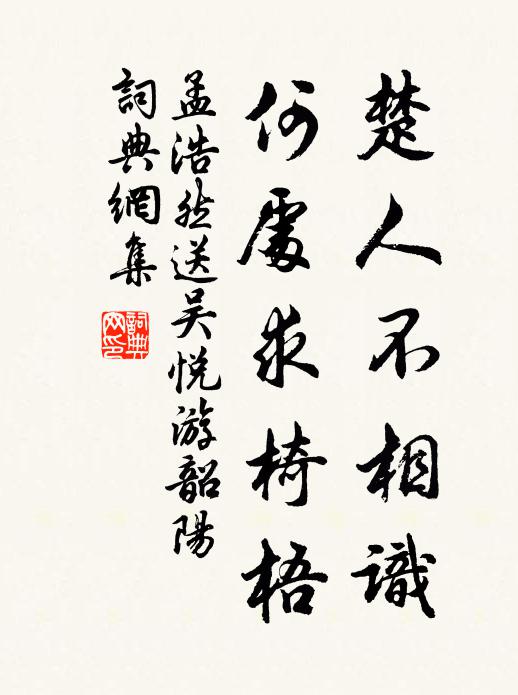 楚人不相識
何處求椅梧
孟浩然送吴悦游韶陽
詞典網集
詞典網印